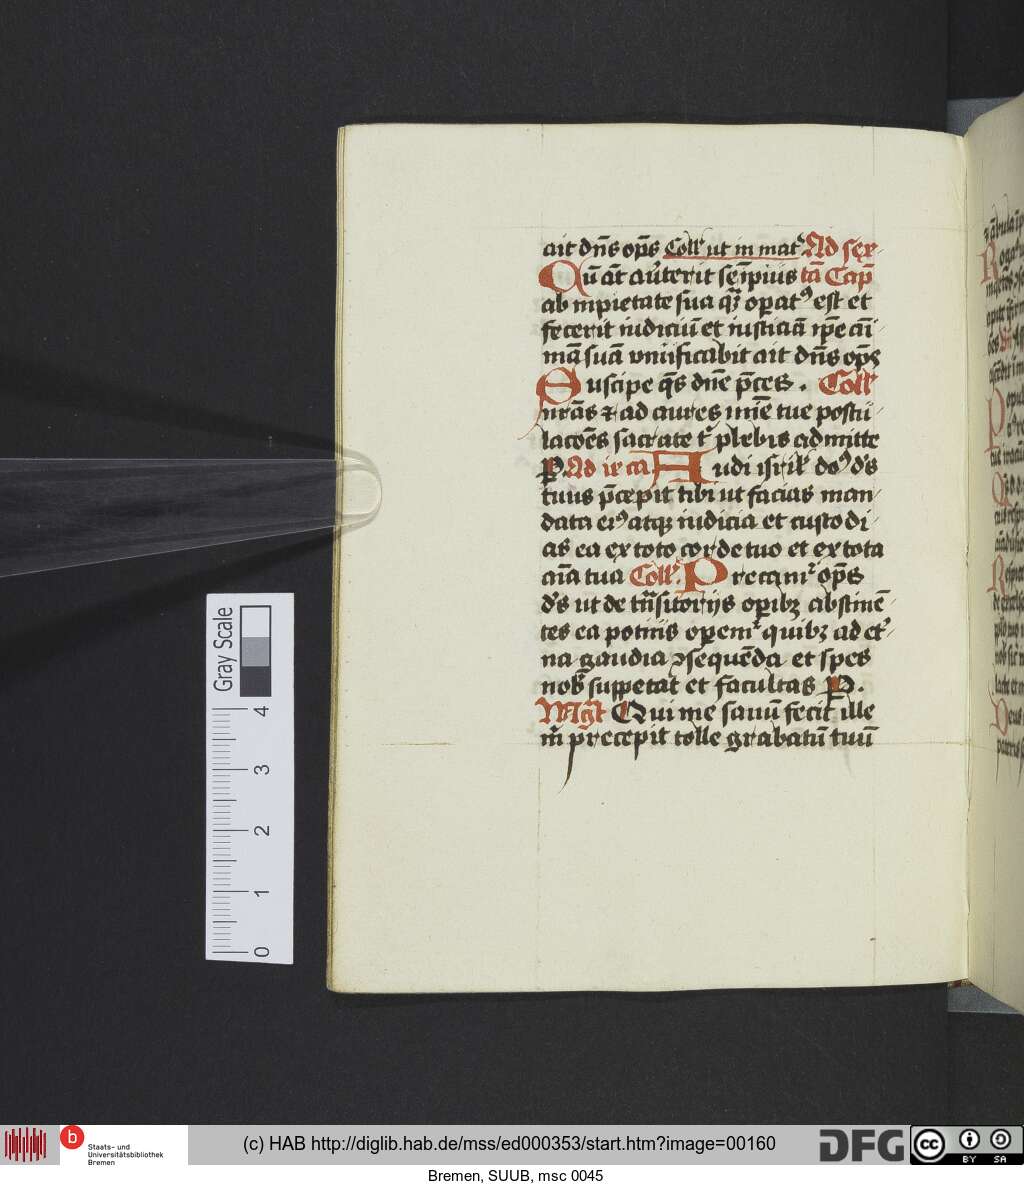 ait dn̄s op̄s Coll' ut in mat' Ad sex-
Qū āt au'terit se īpius tā Cap̄
ab inpietate sua qz̄ opat⁹ est et
fecerit iudiciū et iusticiā ip̄e aīī
mā suā viuificabit ait dn̄s op̄s
Suscipe q̄s dn̄e p̄ces. Coll'
nrās ⁊ ad aures mīe tue postu-
lacōēs sacrate t' plebis admitte
P. Ad .ix. ca Audi isrl' do⁹ d's
tuus p̄cepit tibi ut facias man-
data ei⁹ atqz iudicia et custodi-
as ea ex toto corde tuo et ex tota
aīa tua Coll'. Precam' op̄s
d's ut de trāsitorijs opibz abstinē-
tes ea potius opem' quibz ad et'-
na gaudia ꝯsequēda et spes
nob̄ suppetat et facultas P.
Mag̃t Qui me sanū fecit ille
m̄ precepit tolle grabatū tuū
Gray Scale
4
3
2
1
0
b
Staats- und
Universitätsbibliothek
Bremen
(c) HAB http://diglib.hab.de/mss/ed000353/start.htm?image=00160
DFG
cc
BY SA
Bremen, SUUB, msc 0045